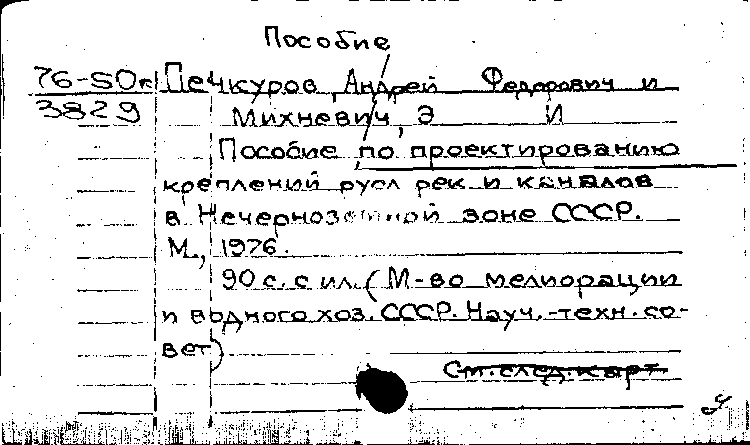 Пособие
76-50п Печкуров, Андрей Федорович и
3829 Михневич, Э И
Пособие по проектированию
креплений русл рек и каналов
в Нечерноземной зоне СССР.
М., 1976.
90 с. с ил. (М-во мелиорации
и водного хоз. СССР. Науч.-техн. со-
вет)
См. след. карт.